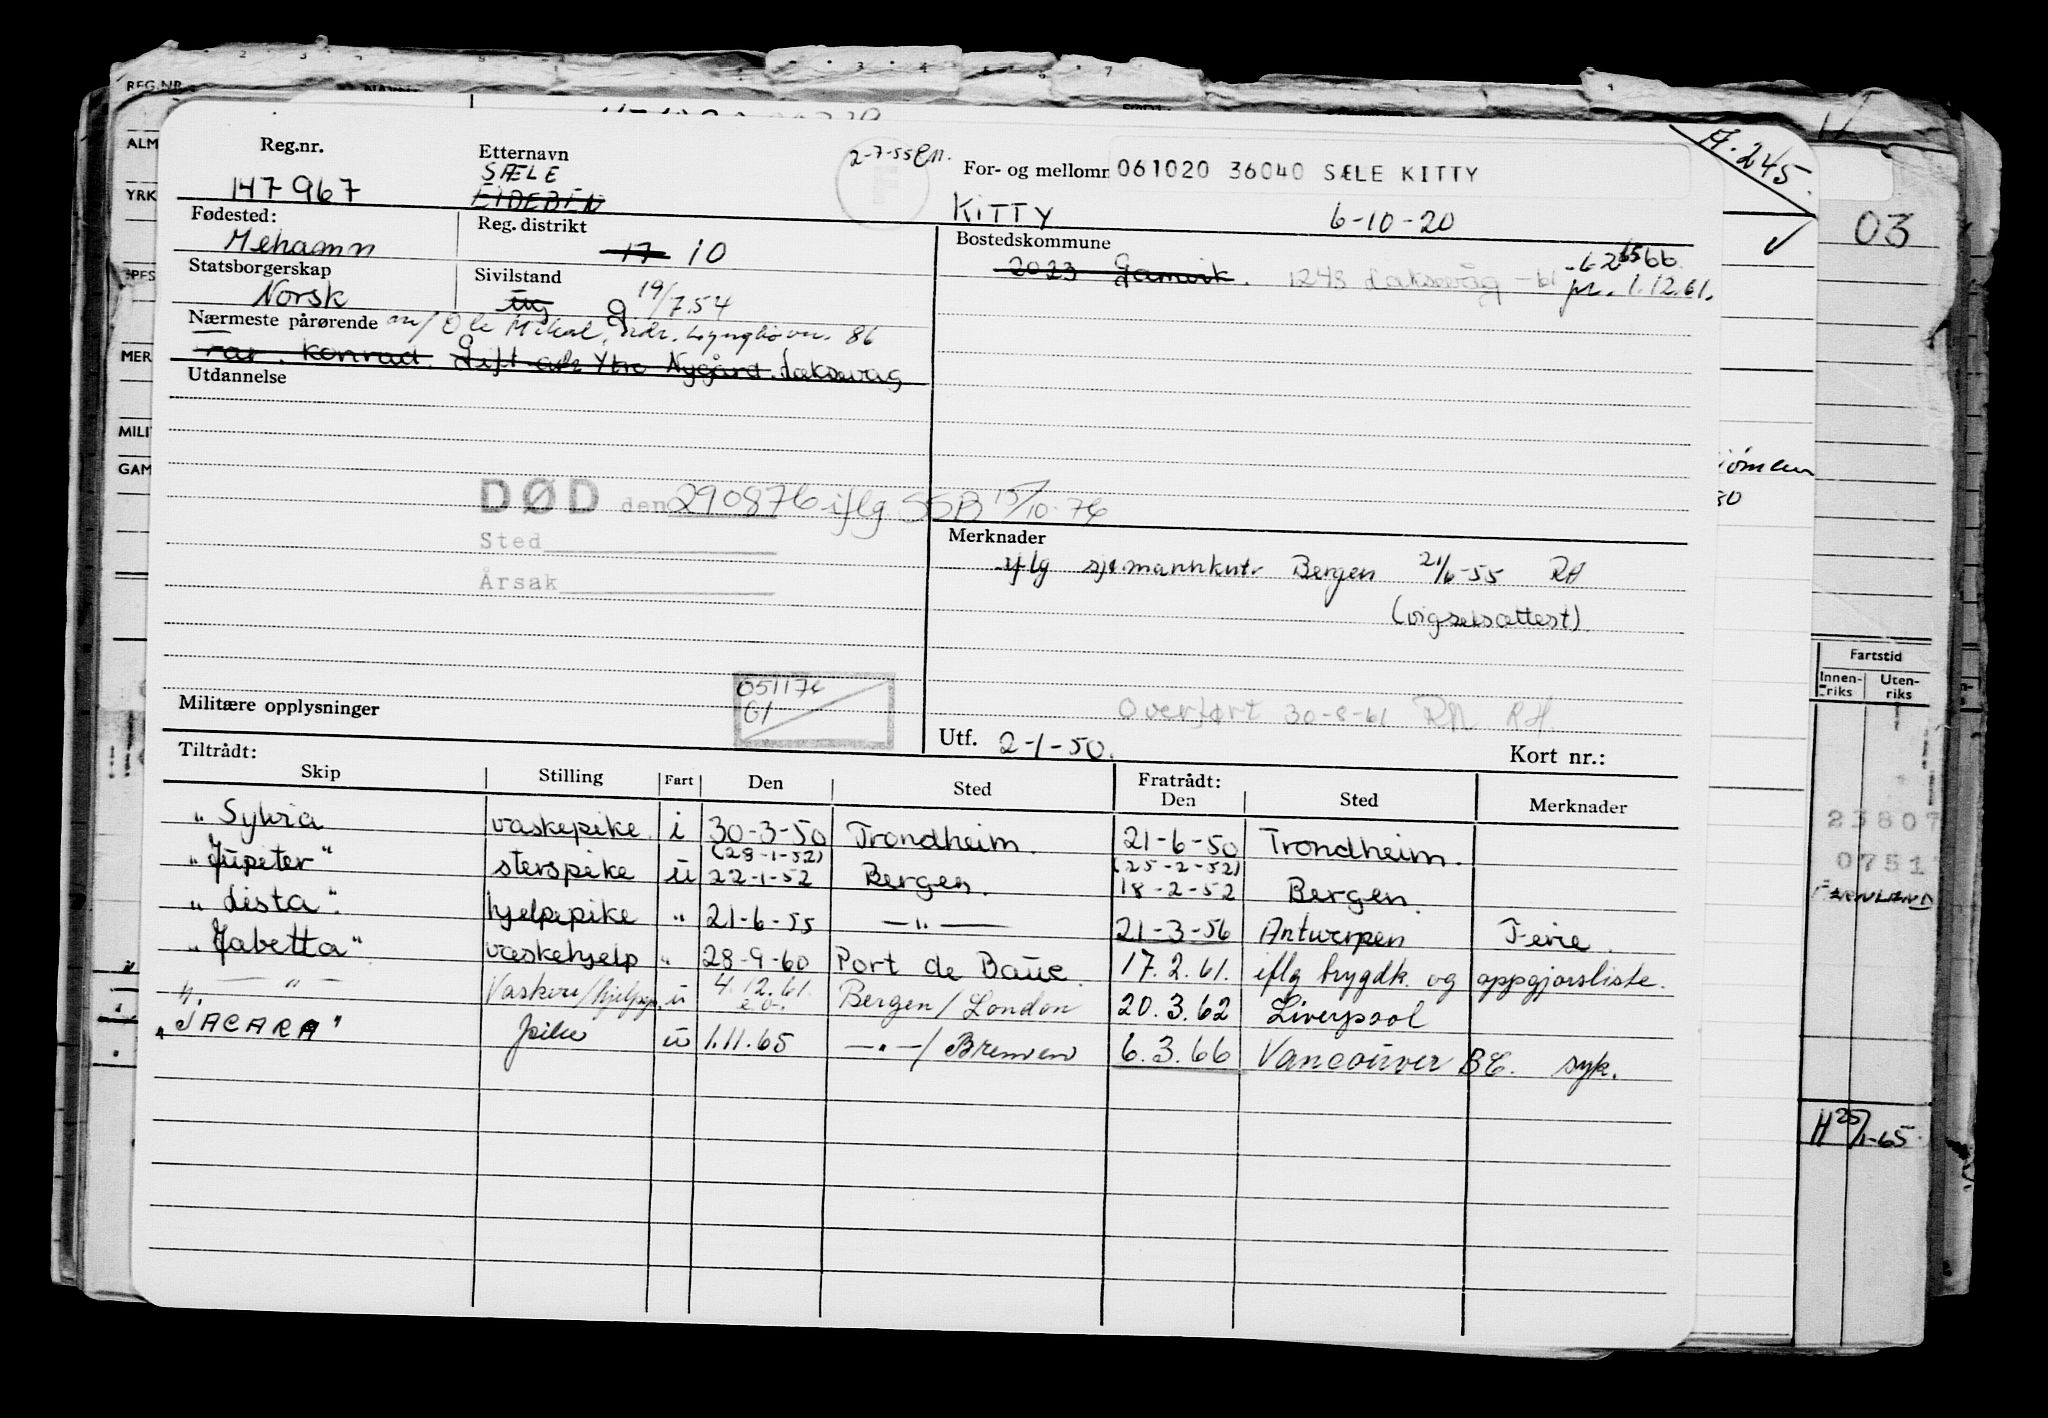 REG.NR.
ALM
YRK
MER
MILI
GAM
A.245.
03
Reg.nr.
147967
Etternavn
SÆLE
EIDEBEN
2-7-55
F
For- og mellomn
061020 36040 SÆLE KITTY
KITTY 6-10-20
Fødested:
Mehamn
Reg. distrikt
17 10
Bostedskommune
2023 Gamvik. 1243 Laksevåg -61
pr. 1.12.61.
Statsborgerskap
Norsk
Sivilstand
ug g 19/7.54
Nærmeste pårørende m/ Ole Mikal, adr. Lyngbøvn. 86
Far. Konrad. Gift adr Ytre Nygård. Laksevåg
Utdannelse
DØD den 290876 iflg. SSB 15/10-76
Sted
Årsak
Merknader
iflg sjømannkntr Bergen 21/6-55 RH
(vigselsattest).
051176
61
Militære opplysninger
Overført 30-8-61 RH.
Utf. 2-1-50.
Kort nr.:
Tiltrådt:
Skip Stilling Fart Den Sted Fratrådt: Den Sted Merknader
"Sylvia vaskepike. i 30-3-50 Trondheim. 21-6-50 Trondheim.
(28-1-52) (25-2-52)
"Jupiter" sterspike ü 22-1-52 Bergen. 18-2-52 Bergen.
"Lista". hjelpepike " 21-6-55 —"— 21-3-56 Antwerpen Ferie.
"Jabetta" vaskehjelp " 28-9-60 Port de Bouc. 17.2.61. iflg trygdk. og oppgjørsliste.
— " — Vaskeri/hjelpep. ü 4.12.61. e.o. Bergen/London 20.3.62 Liverpool
"JACARA" pike ü 1.11.65 —"—/ Bremen 6.3.66 Vancouver BC. syk.
30
Fartstid
Innen-riks Uten-riks
23807
0751
H 25/1-65.